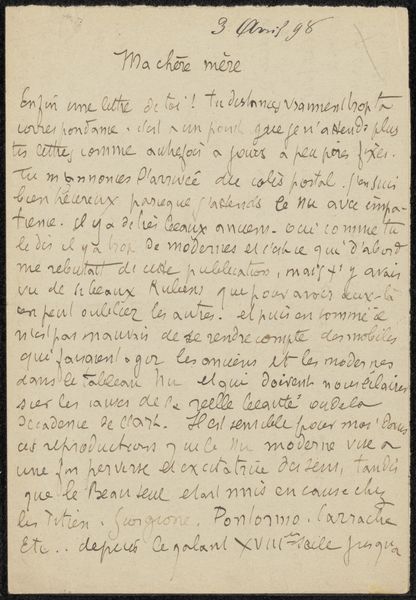 3 Avril 98
Ma chère mère
Enfin une lettre de toi ! tu distances vraiment trop ta
correspondance. c'est à un point que je n'attends plus
tes lettres comme autrefois à jours à peu près fixes.
Tu m'annonces l'arrivée du colis postal. j'en suis
bien heureux parceque j'attends le Nu avec impa-
tience. il y a de très beaux anciens. oui comme tu
le dis il y a trop de modernes et c'est ce qui d'abord
me rebutait de cette publication, mais j'y avais
vu de si beaux Rubens que pour avoir ceux-là
on peut oublier les autres. et puis en somme il
n'est pas mauvais de se rendre compte des mobiles
qui faisaient agir les anciens et les modernes
dans le tableau Nu et qui doivent nous éclairer
sur les causes de la réelle beauté ou de la
décadence de l'art. Il est sensible pour moi dans
ces reproductions que le Nu moderne vise à
une fin perverse et excitatrice des sens, tandis
que le Beau seul était mis en cause chez
les Titien. Giorgione. Pontormo. Carrache
Etc.. depuis le galant XVIII siècle jusqu'à